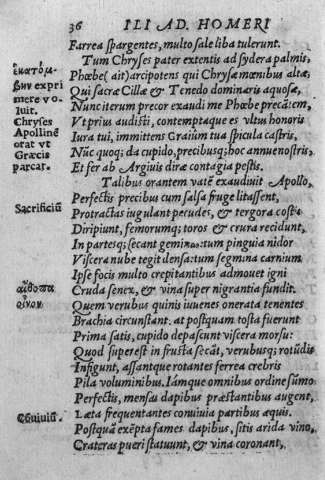 36 ILI AD. HOMERI
Farrea spargentes, multo sale liba tulerunt.
Tum Chryses pater extentis ad sydera palmis,
Phœbe (ait) arcipotens qui Chrysæ mœnibus altæ,
Qui sacræ Cillæ & Tenedo dominaris aquosæ,
Nunc iterum precor exaudi me Phœbe precãtem,
Vt prius audisti, contemptaque es vltus honoris
Iura tui, immittens Graiûm tua spicula castris,
Nũc quoq; da cupido, precibusq; hoc annue nostris,
Et fer ab Argiuis diræ contagia pestis.
Talibus orantem vatẽ exaudiuit Apollo,
Perfectis precibus cum salsa fruge litassent,
Protractas iugulant pecudes, & tergora costis
Diripiunt, femorumq; toros & crura recidunt,
In partesq; secant geminas: tum pinguia nidor
Viscera nube tegit densa: tum segmina carnium
Ipse focis multo crepitantibus admouet igni
Cruda senex, & vina super nigrantia fundit.
Quem verubus quinis iuuenes onerata tenentes
Brachia circunstant. at postquam tosta fuerunt
Prima satis, cupido depascunt viscera morsu:
Quod superest in frusta secãt, verubusq; rotũdis
Infigunt, assantque rotantes ferrea crebris
Pila voluminibus. Iámque omnibus ordine sũmo
Perfectis, mensas dapibus præstantibus augent,
Læta frequentantes conuiuia partibus æquis.
Postquã exẽpta fames dapibus, sitis arida vino,
Crateras pueri statuunt, & vina coronant,
ἑκατόμ-
βην expri
mere vo
luit.
Chryses
Apollinẽ
orat vt
Græcis
parcat.
Sacrificiũ
αἴθοπα
οἶνον.
Cõuiuiũ.